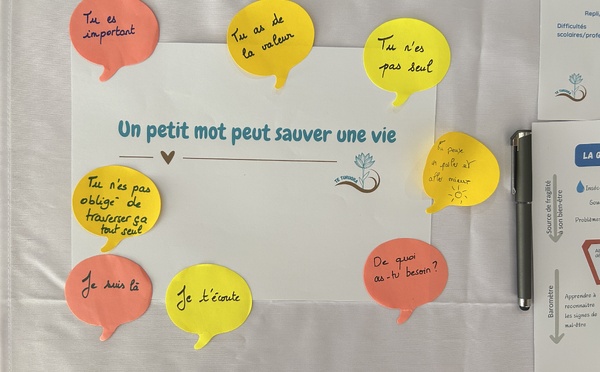 Tu es
important
Tu as de
la valeur
Tu n'es
pas seul
Un petit mot peut sauver une vie
Tu n'es pas
obligé de
traverser ça
tout seul
en parler et
aller mieux
Je suis là
Je t'écoute
De quoi
as-tu besoin ?
Difficultés
Source de fragilité
à son bien-être
Baromètre
Apprendre à
reconnaitre
les signes de
mal-être